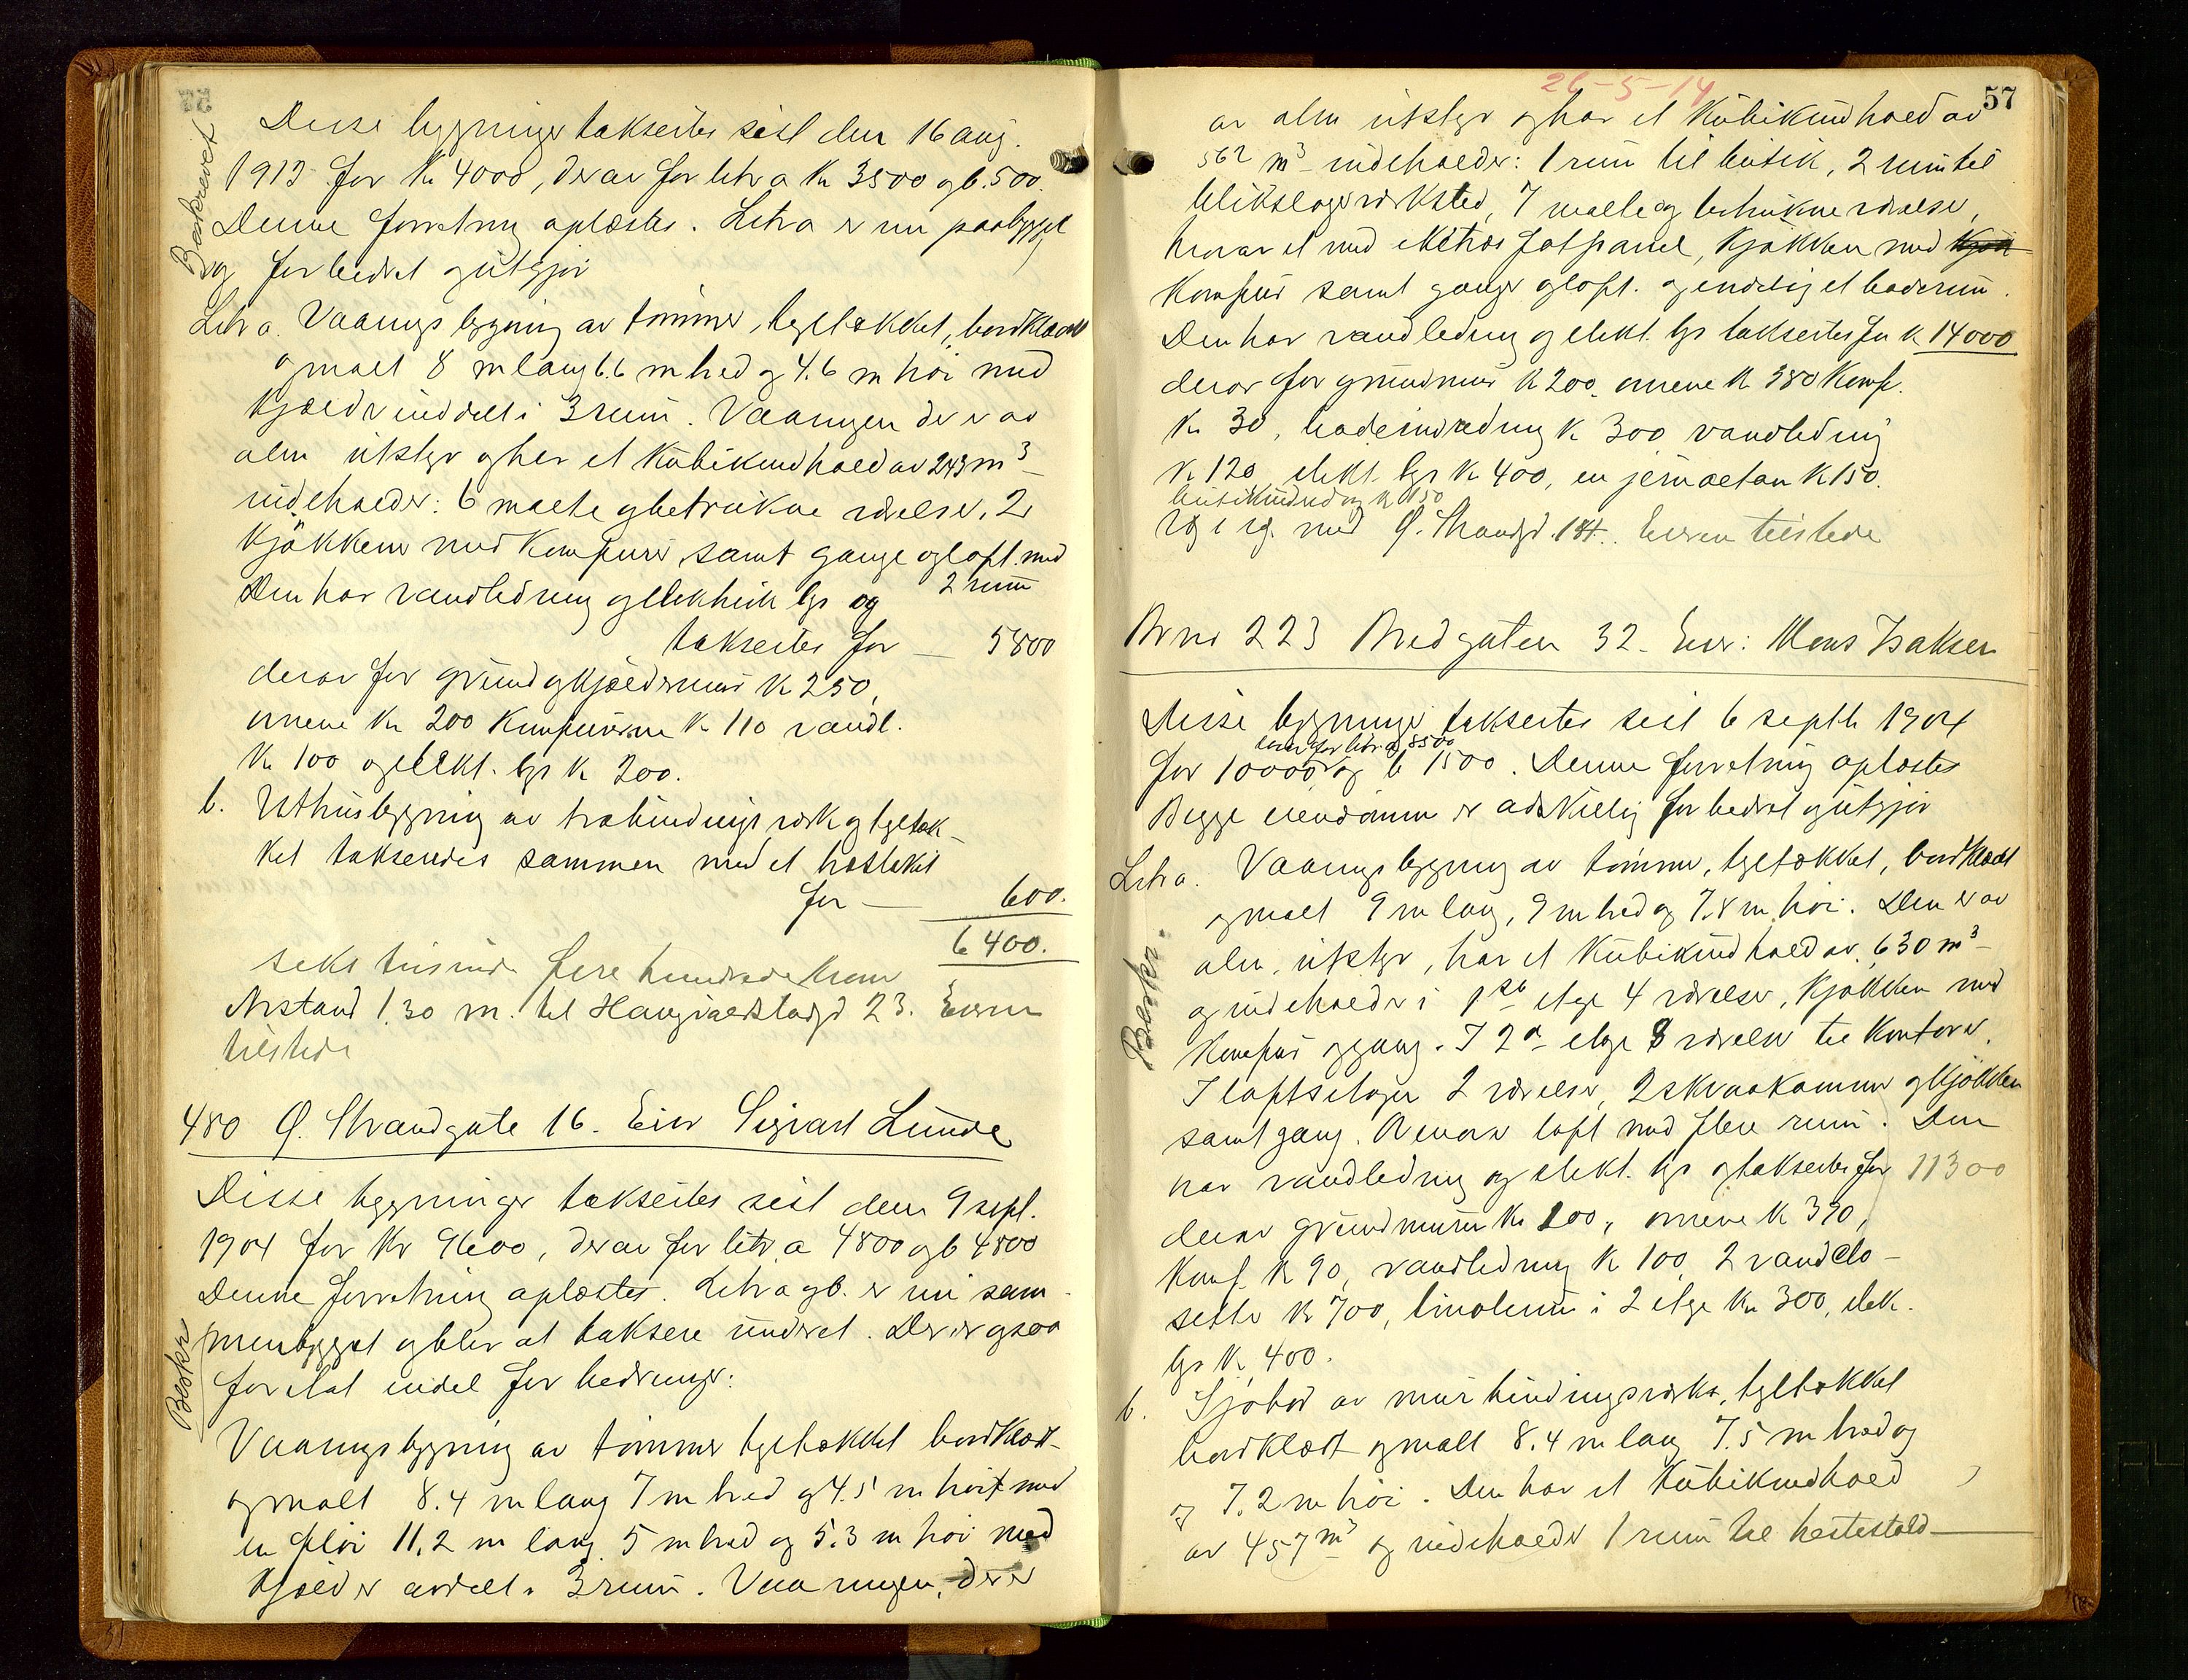 Beskrevet
Disse bygninger taksertes sist den 16 aug.
1912 for Kr 4000, derav for litr a Kr 3500 og b. 500.
Denne forretning oplæstes. Litr a er nu paabygget
og forbedret og utgjør
Litr a. Vaanings bygning av tømmer, tegltækket, bordklædt
og malt 8 m lang 6.6 m bred og 4.6 m høi med
kjælder inddelt i 3 rum. Vaaningen der er av
alm utstyr og har et Kubikindhold av 243 m³
indeholder: 6 malte og betrukne værelser, 2
kjøkkener med komfurer samt gange og loft med
2 rum
Den har vandledning og elektrisk lys og
takseres for — 5800
derav for grund og kjældermur Kr 250,
ovnene Kr 200 Komfurerne Kr 110 vandl.
Kr 100 og elekt. lys Kr 200.
b. Uthusbygning av træbindings verk og tegltæk-
ket takseredes sammen med et træstakit
for — 600.
6400.
seks tusinde fire hundrede kroner
Avstand 1.30 m. til Haugvaldstadgd 23. Eieren
tilstede
480 Ø. Strandgate 16. Eier Sigvart Lunde
Disse bygninger taksertes sist den 9 sept.
1904 for Kr 9600, derav for litr. a 4800 og b 4800
Denne forretning oplæstes. Litr a og b. er nu sam-
menbygget og blir at taksere under et. Der er ogsaa
foretat endel forbedringer:
Beskr
Vaanings bygning av tømmer tegltækket bordklædt
og malt 8.4 m lang 7 m bred og 4.5 m høit med
en fløi 11.2 m lang 5 m bred og 5.3 m høi med
kjælder avdelt i 3 rum. Vaaningen, der er
26-5-14
57
av alm utstyr og har et Kubikindhold av
562 m³ indeholder: 1 rum til butik, 2 rum til
blikslagerverksted, 7 malte og betrukne værelser,
hvorav et med ekstra fotpanel, Kjøkken med
Komfur samt ganger og loft. og endelig et baderum.
Den har vandledning og elekt. lys taksertes for Kr 14000
derav for grundmur Kr 200. ovnene Kr 380 Komf.
Kr 30, badeindredning Kr 300 vandledning
Kr 120 elekt. lys Kr 400, en jernaltan Kr 150.
butikindredning Kr 150
Væg i væg med Ø. Strandgd. 14. Eieren tilstede
Br no 223 Bredgaten 32. Eier: Mons Isaksen
Disse bygninger taksertes sist 6 septbr 1904
derav for litr a 8500
for 10000 og b 1500. Denne forretning oplæstes
Begge eiendomme er adskillig forbedret og utgjør
Litr a. Vaanings bygning av tømmer, tegltækket, bordklædt
og malt 9 m lang, 9 m bred og 7.8 m høi. Den er av
Beskr.
alm. utstyr, har et Kubikindhold av 630 m³
og indeholder i 1ste etage 4 værelser, Kjøkken med
Komfur og gang. I 2den etage 8 værelser til kontorer.
I loftsetagen 2 værelser, 2 skraakammer og kjøkken
samt gang. Øverst loft med flere rum. Den
har vandledning og elekt. lys og takseres for 11300
derav grundmuren Kr 200, ovnene Kr 390,
Komf. Kr 90, vandledning Kr 100, 2 vandclo-
setter Kr 700, linoleum i 2 etage Kr 300, elek.
lys Kr 400.
b. Sjøbod av mur bindingsverk, tegltækket
bordklædt og malt 8.4 m lang 7.5 m bred og
og 7.2 m høi. Den har et Kubikindhold
av 457 m³ og indeholder 1 rum til hestestald